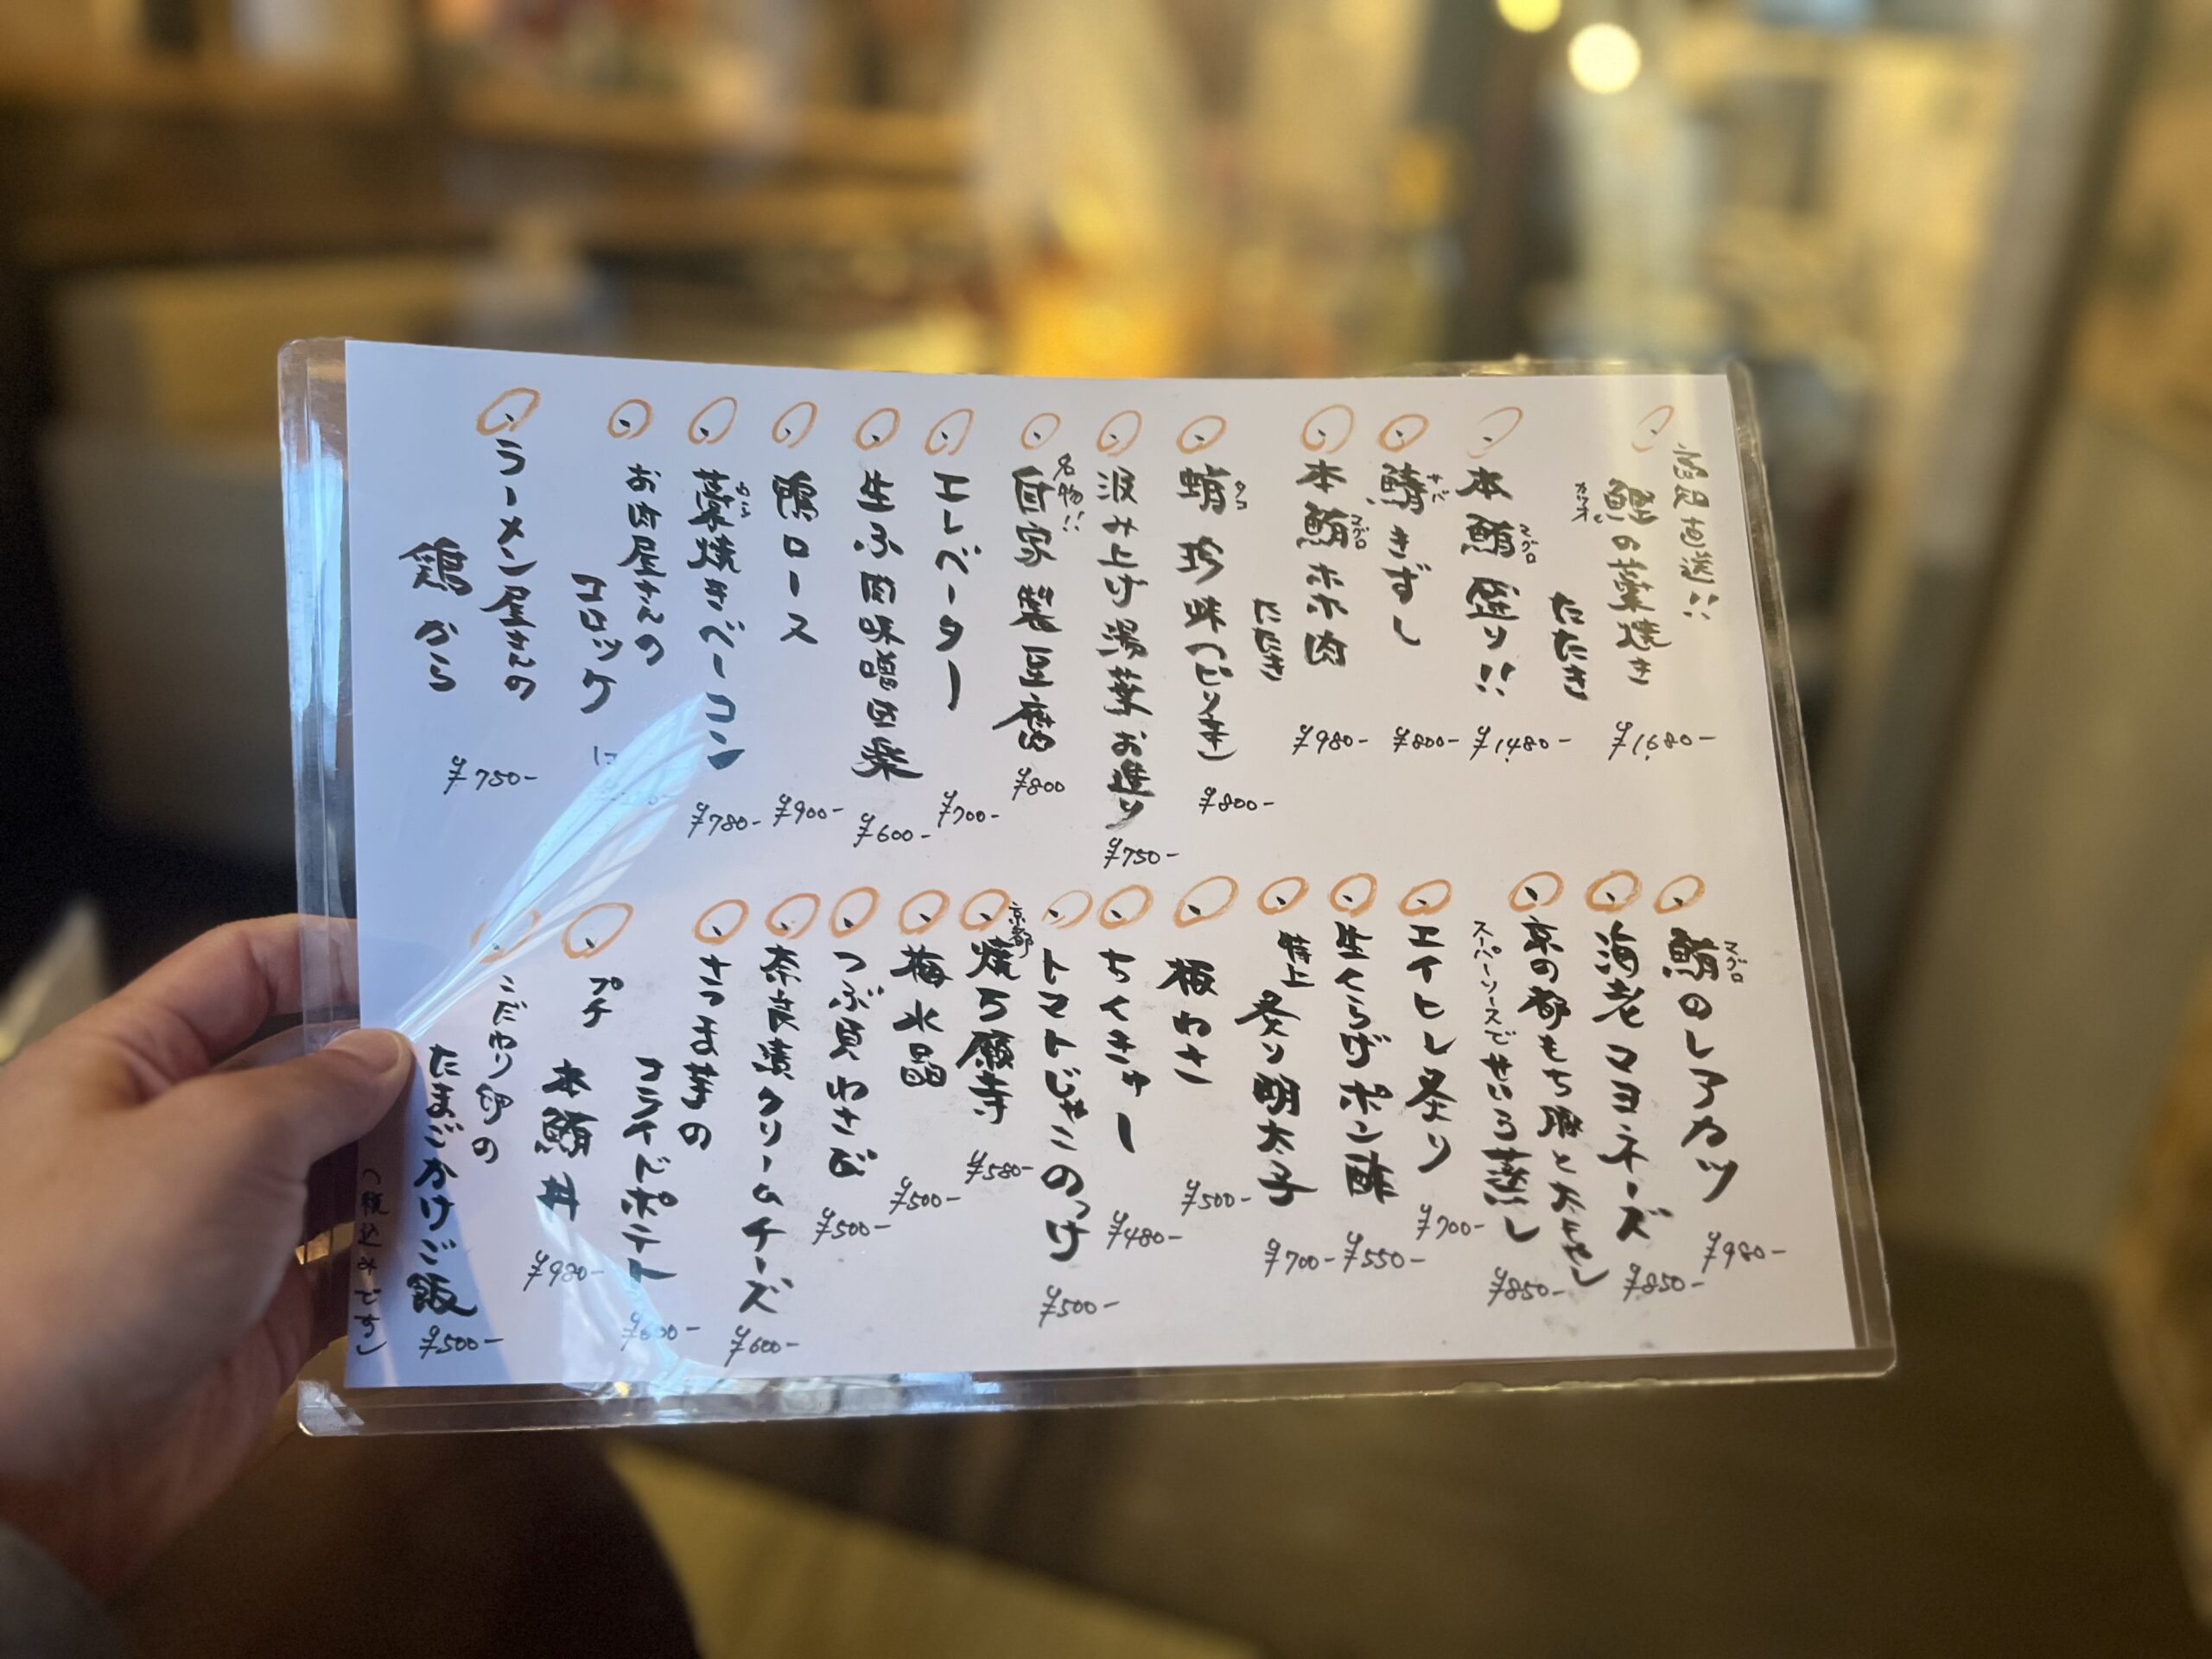 高知直送!!
鰹の藁焼き
カツオ
たたき
¥1,680-
本鮪盛り!!
マグロ
¥1,480-
鯖きずし
サバ
¥800-
本鮪ホホ肉
マグロ
たたき
¥980-
蛸珍味(ピリ辛)
タコ
¥800-
汲み上げ湯葉お造り
¥750-
名物!!
自家製豆腐
¥800
エレベーター
¥700-
生ぶ肉味噌田楽
¥600-
鴨ロース
¥900-
藁焼きベーコン
わら
¥780-
お肉屋さんの
コロッケ
ラーメン屋さんの
鶏から
¥750-
鮪のレアカツ
マグロ
¥980-
海老マヨネーズ
¥850-
京の都もち豚と大根
スーパーソースでせいろ蒸し
¥850-
エイヒレ炙り
¥700-
生くらげポン酢
¥550-
特上
炙り明太子
¥700-
板わさ
¥500-
ちくきゅー
¥480-
トマトじゃこのっけ
¥500-
京都
焼万願寺
¥580-
梅水晶
¥500-
つぶ貝わさび
¥500-
奈良漬クリームチーズ
¥600-
さつま芋の
フライドポテト
¥600-
プチ
本鮪丼
¥980-
こだわり卵の
たまごかけご飯
¥500-
(税込みです)